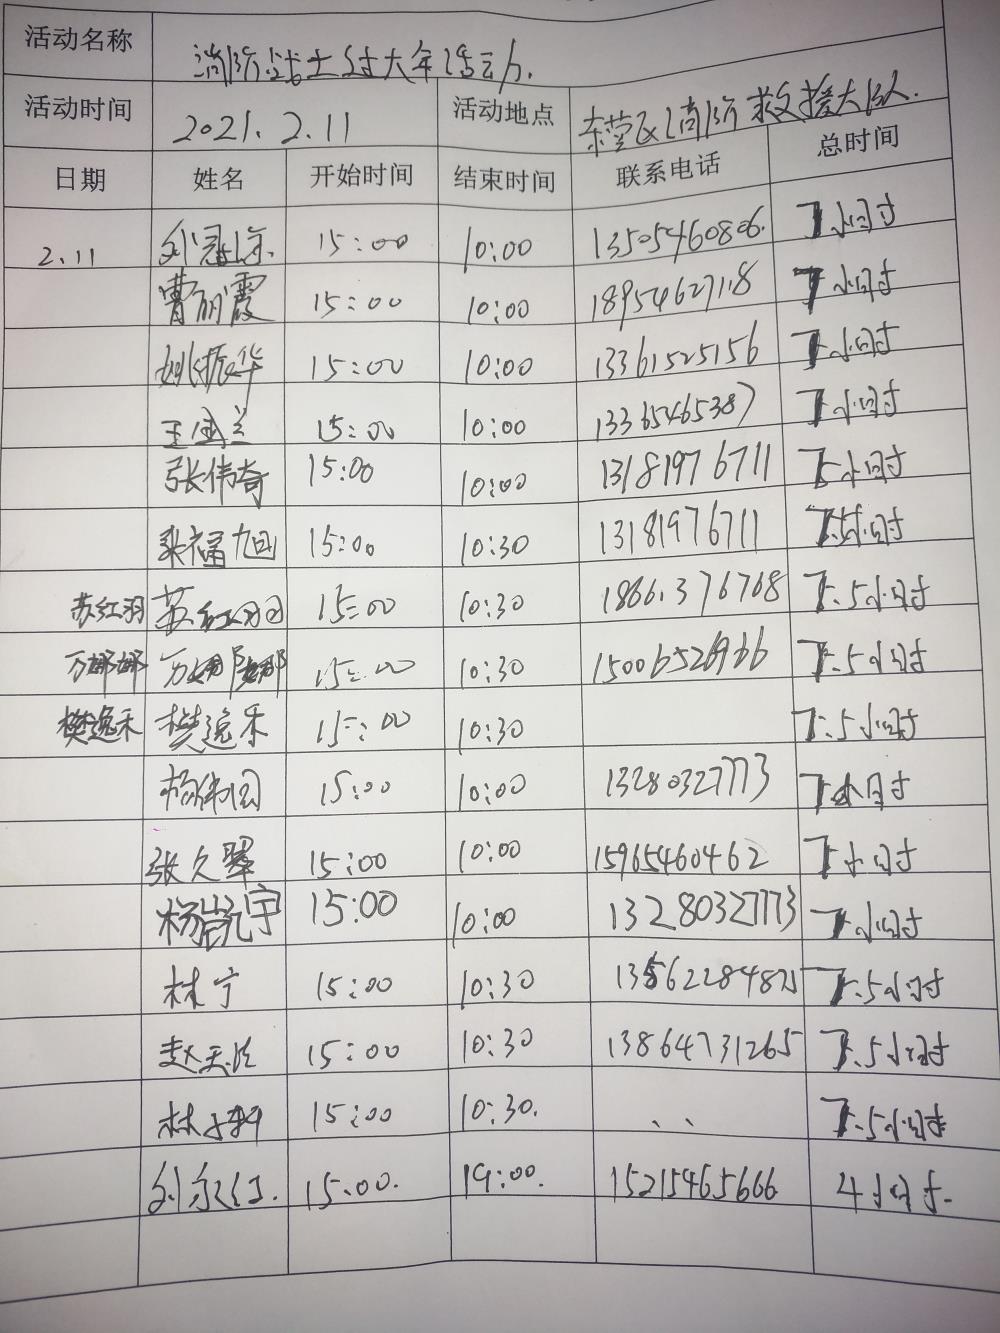 活动名称 消防战士过大年活动.
活动时间 2021.2.11 活动地点 东营区消防救援大队.
日期 姓名 开始时间 结束时间 联系电话 总时间
2.11 15:00 10:00 13505460806. 7小时
曹丽霞 15:00 10:00 18954627118 7小时
姚振华 15:00 10:00 13361525156 7小时
王国兰 15:00 10:00 13365465387 7小时
张伟奇 15:00 10:00 13181976711 7小时
张福旭 15:00 10:30 13181976711 7.5小时
苏红羽 苏红羽 15:00 10:30 1866.376768 7.5小时
万娜娜 万娜娜 15:00 10:30 7.5小时
樊逸禾 樊逸禾 15:00 10:30 7.5小时
杨伟国 15:00 10:00 13280327773 7小时
张久翠 15:00 10:00 15965460462 7小时
杨凯宇 15:00 10:00 13280327773 7小时
林宁 15:00 10:30 7.5小时
赵天浩 15:00 10:30 13864731265 7.5小时
林子轩 15:00 10:30. 、、 7.5小时
15:00. 19:00. 15215465666 4小时.